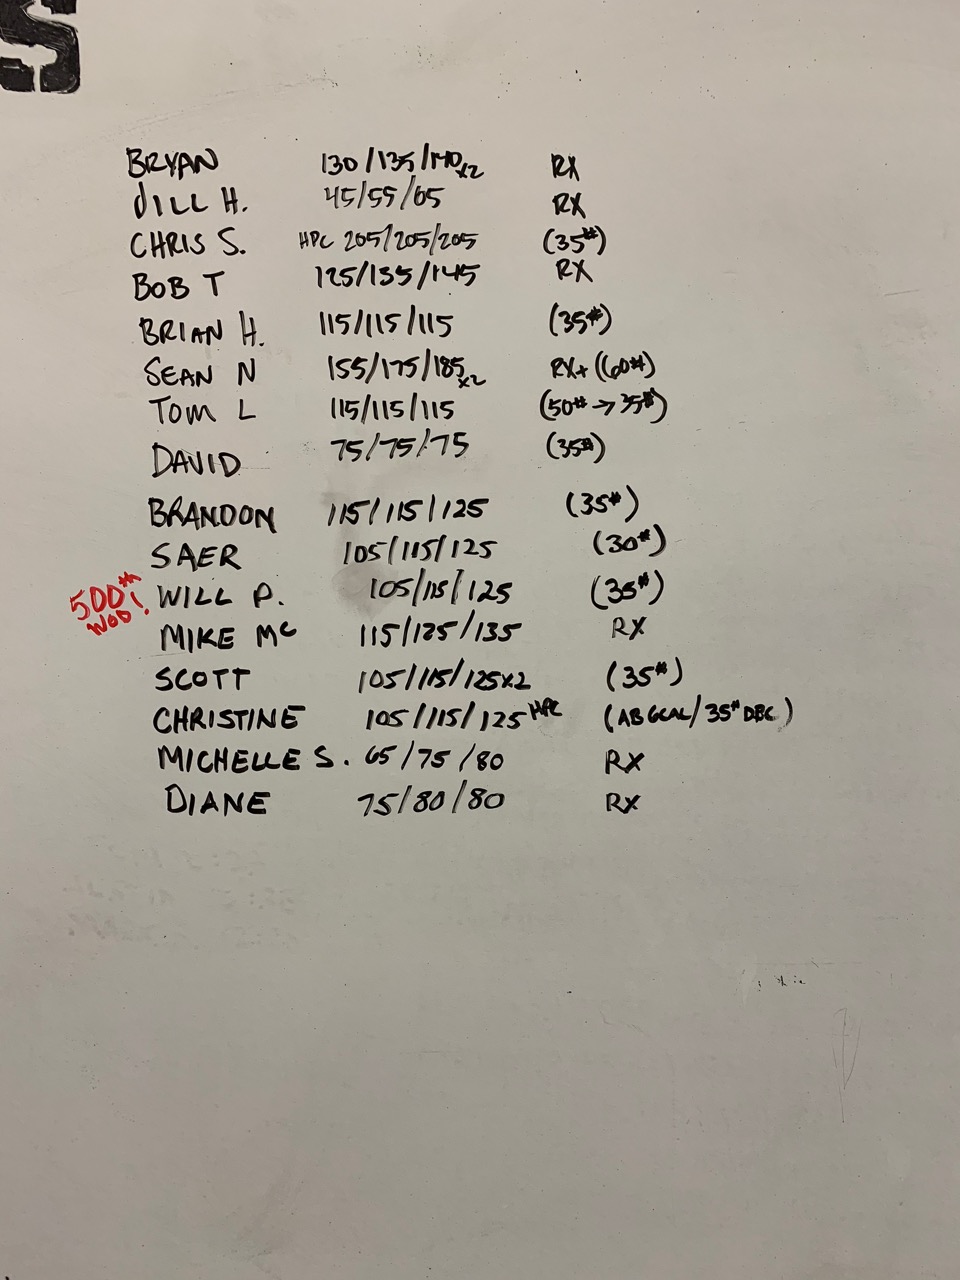 S
BRYAN 130/135/140x2 RX
JILL H. 45/55/65 RX
CHRIS S. HPC 205/205/205 (35#)
BOB T 125/135/145 RX
BRIAN H. 115/115/115 (35#)
SEAN N 155/175/185x2 RX+ (60#)
TOM L 115/115/115 (50# → 35#)
DAVID 75/75/75 (35#)
BRANDON 115/115/125 (35#)
SAER 105/115/125 (30#)
500th WOD! WILL P. 105/115/125 (35#)
MIKE Mc 115/125/135 RX
SCOTT 105/115/125x2 (35#)
CHRISTINE 105/115/125 HPC (AB 6CAL/35# DBC)
MICHELLE S. 65/75/80 RX
DIANE 75/80/80 RX